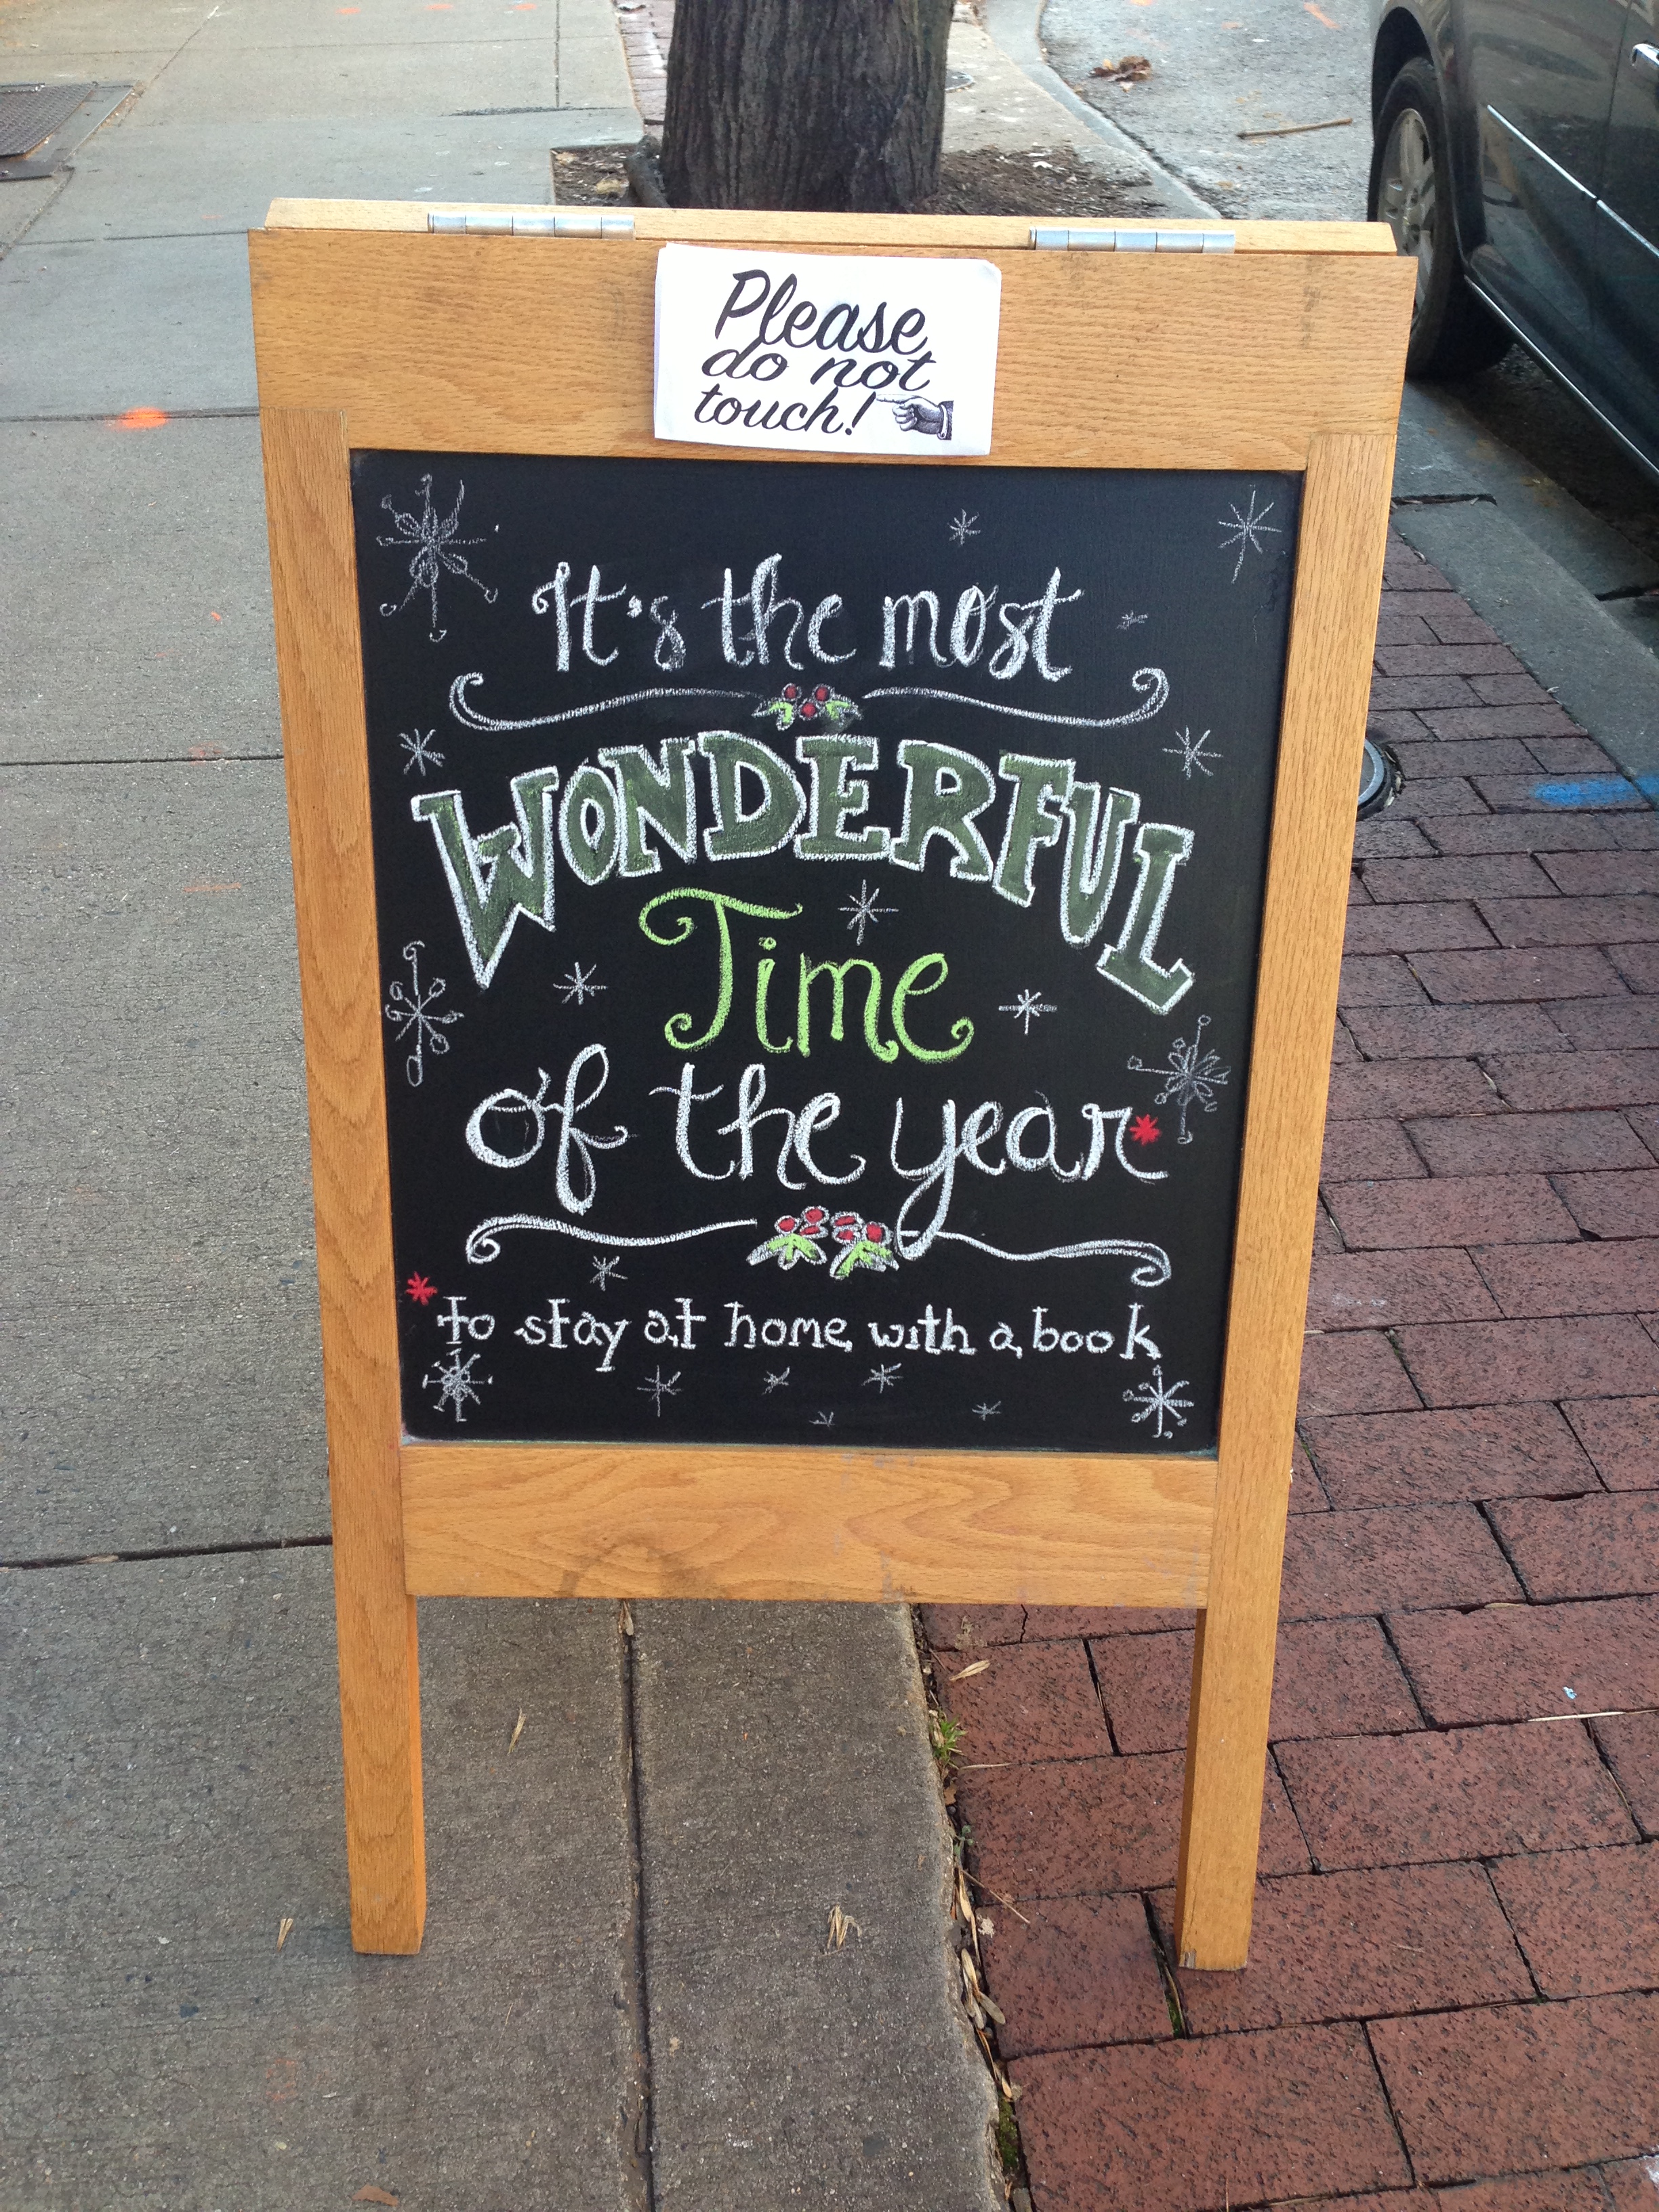 Please
do not
touch!
It's the most
WONDERFUL
Time
of the year*
*to stay at home with a book